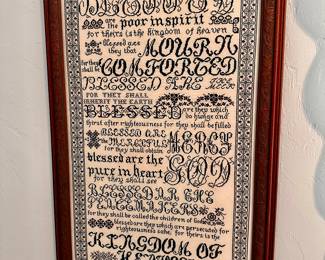 BLESSED
are the poor in spirit
for theirs is the kingdom of heaven
blessed are they that MOURN
for they shall be
COMFORTED
BLESSED ARE THE MEEK
FOR THEY SHALL
INHERIT THE EARTH
BLESSED are they which
do hunger and
thirst after righteousness for they shall be filled
BLESSED ARE
the MERCIFUL
for they shall obtain MERCY
blessed are the
pure in heart
for they shall see GOD
BLESSED ARE THE
PEACEMAKERS
for they shall be called the children of God
blessed are they which are persecuted for
righteousness sake for theirs is the
KINGDOM OF
HEAVEN